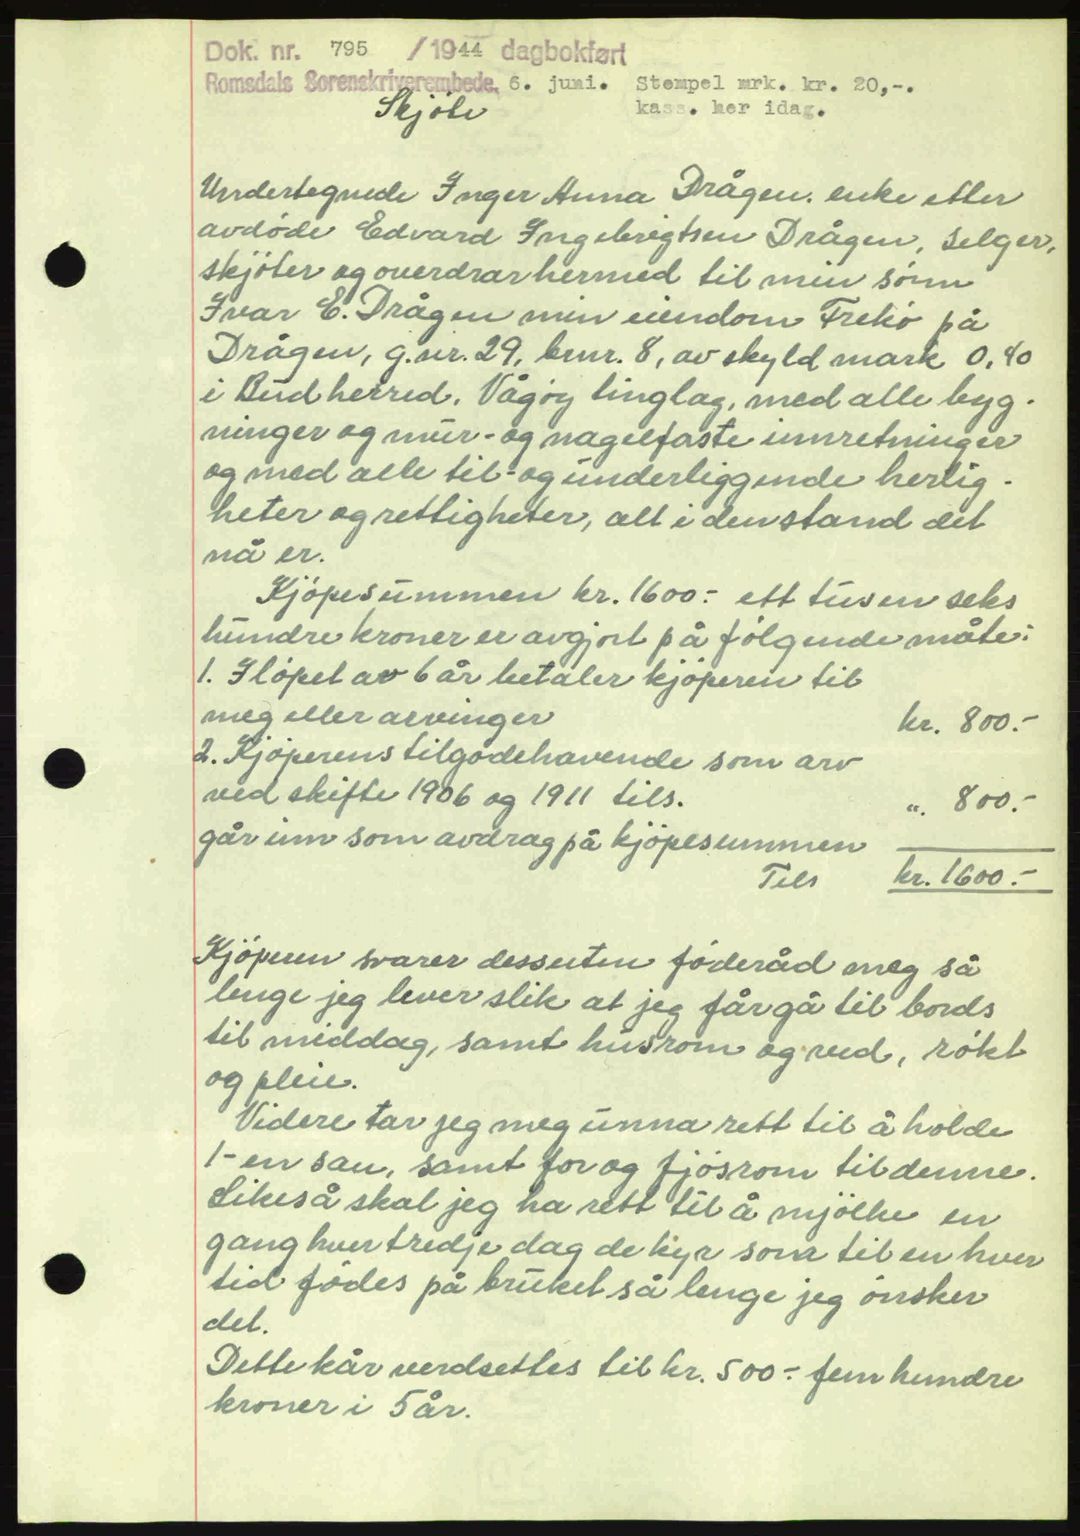 Dok. nr. 795 /1944 dagbokført
Romsdals Sorenskriverembede, 6. juni. Stempel mrk. kr. 20,-.
kass. her idag.
Skjöte
Undertegnede Inger Anna Drågen, enke etter
avdöde Edvard Ingebrigtsen Drågen, selger,
skjöter og overdrar hermed til min sönn
Ivar E. Drågen min eiendom Frekö på
Drågen, g.nr. 29, brnr. 8, av skyld mark 0,40
i Bud herred, Vågöy tinglag, med alle byg-
ninger og mur- og nagelfaste innretninger
og med alle til- og underliggende herlig-
heter og rettigheter, alt i den stand det
nå er.
Kjöpesummen kr. 1600.- ett tusen seks
hundre kroner er avgjort på fölgende måte:
1. I löpet av 6 år betaler kjöperen til
meg eller arvinger kr. 800.-
2. Kjöperens tilgodehavende som arv
ved skifte 1906 og 1911 tils. ". 800.-
går inn som avdrag på kjöpesummen
Tils kr. 1600.-
Kjöperen svarer dessuten föderåd meg så
lenge jeg lever slik at jeg får gå til bords
til middag, samt husrom og ved, rökt
og pleie.
Videre tar jeg meg unna rett til å holde
1- en sau, samt for og fjösrom til denne.
Likeså skal jeg ha rett til å mjölke en
gang hver tredje dag de kyr som til en hver
tid födes på bruket så lenge jeg önsker
det.
Dette kår verdsettes til kr. 500.- fem hundre
kroner i 5 år.